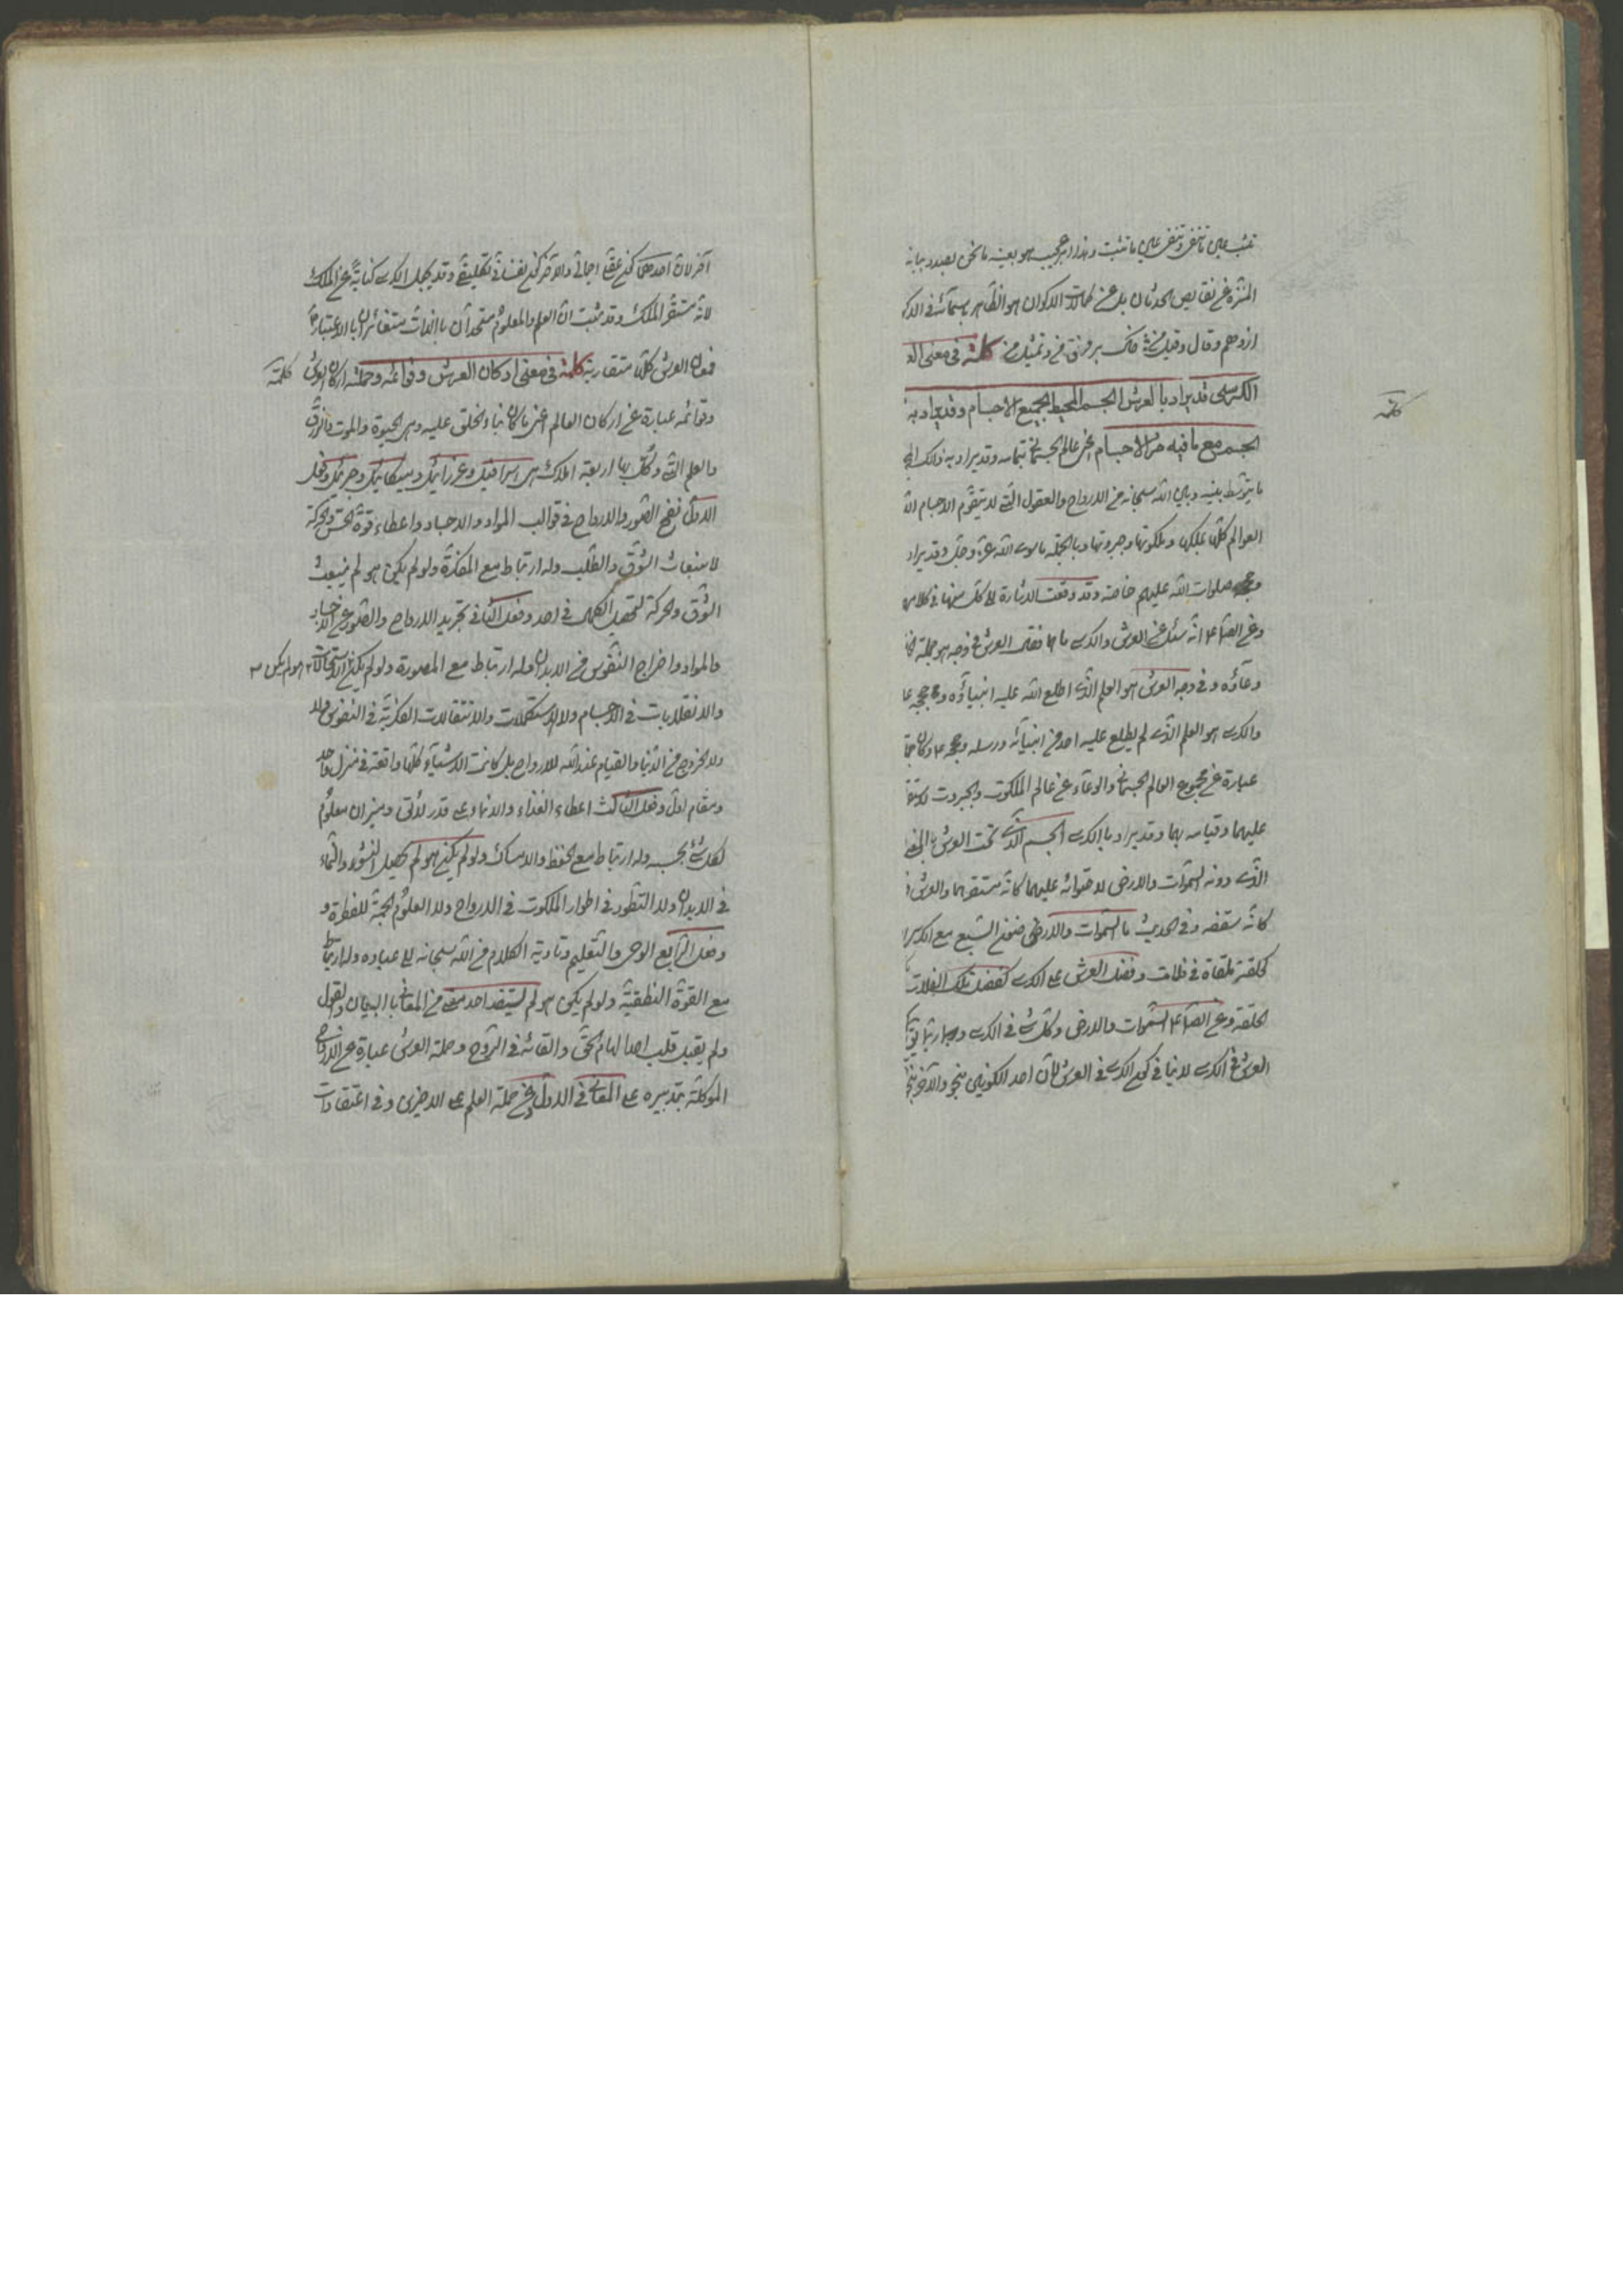 المنزه عن نقايص الحدثان بل عن كمالات الاكوان هو الظاهر باسمائه في
كلمة في معنى
الكرسي قد يراد بالعرش الجسم المحيط بجميع الاجسام وقد يراد به
الجسم مع ما فيه من الاجسام اعني عالم الجسماني بتمامه وقد يراد به ذلك
كلمة
ما يتوسط بينه وبين الله سبحانه من الارواح والعقول التي لا يتقوم الاجسام
العوالم كلها بملكها وملكوتها وجبروتها وبالجملة ما سوى الله عز وجل وقد يراد
صلوات الله عليهم خاصة وقد وقعت الاشارة الى كل منها في كلامهم
وعن الصا ع انه سئل عن العرش والكرسي ما هما فقال العرش في وجه هو جملة
وعاؤه وفي وجه العرش هو العلم الذي اطلع الله عليه انبياؤه
والكرسي هو العلم الذي لم يطلع عليه احد من انبيائه ورسله
عبارة عن مجموع العالم الجسماني والوعاء عن عالم الملكوت والجبروت
عليهما وقيامه بهما وقد يراد بالكرسي الجسم الذي تحت العرش
الذي دونه السموات والارض لاحتوائه عليهما كانه مستقرهما والعرش
كانه سقفه وفي الحديث ما السموات والارضون السبع مع الكرسي
كحلقة ملقاة في فلاة وفضل العرش على الكرسي كفضل تلك الفلاة
الحلقة وعن الصا ع السموات والارض وكل شي في الكرسي
العرش في الكرسي لا ينافي كون الكرسي في العرش لان احد الكونين بنحو والاخر
اخر لان احدهما كون عقلي اجمالي والاخر كون نفساني تفصيلي وقد يجعل الكرسي كناية عن الملك
لانه مستقر الملك وقد ثبت ان العلم والمعلوم متحدان بالذات متغائران بالاعتبار
العرش كلها متقاربة كلمة في معنى اركان العرش وقوائمه وحملته اركان العرش
كلمة
وقوائمه عبارة عن اركان العالم اعني ما كان بناء الخلق عليه وهي الحيوة والموت والرزق
والعلم التي وكل بها اربعة املاك هي اسرافيل وعزرائيل وميكائيل وجبرئيل وفعل
الاول نفخ الصور والارواح في قوالب المواد والاجساد واعطاء قوة الحس والحركة
لانبعاث الشوق والطلب وله ارتباط مع المفكرة ولو لم يكن هو لم ينبعث
الشوق والحركة لتحصيل الكمال في احد وفعل الثاني تجريد الارواح والصور عن الاجساد
والمواد واخراج النفوس من الابدان وله ارتباط مع المصورة ولو لم يكن هو لم يكن الاستحالات
والانقلابات في الاجسام ولا الاستكمالات والانتقالات الفكرية في النفوس ولا
ولا الخروج من الدنيا والقيام عند الله للارواح بل كانت الاشياء كلها واقعة في منزل واحد
ومقام اول وفعل الثالث اعطاء الغذاء والانماء على قدر لائق وميزان معلوم
لكل شئ بحسبه وله ارتباط مع الحفظ والامساك ولو لم يكن هو لم يحصل النشو والنماء
في الابدان ولا التطور في اطوار الملكوت في الارواح ولا العلوم الجمة للفطرة و
وفعل الرابع الوحي والتعليم وتادية الكلام من الله سبحانه الى عباده وله ارتباط
مع القوة النطقية ولو لم يكن هو لم يستفد احد معنى من المعاني بالبيان والقول
ولم يقبل قلب احد الهام الحق والقائه في الروح وحملة العرش عبارة عن الارواح
الموكلة بتدبيره على المعاني في الاول وعن حملة العلم على الاخرين وفي اعتقادات